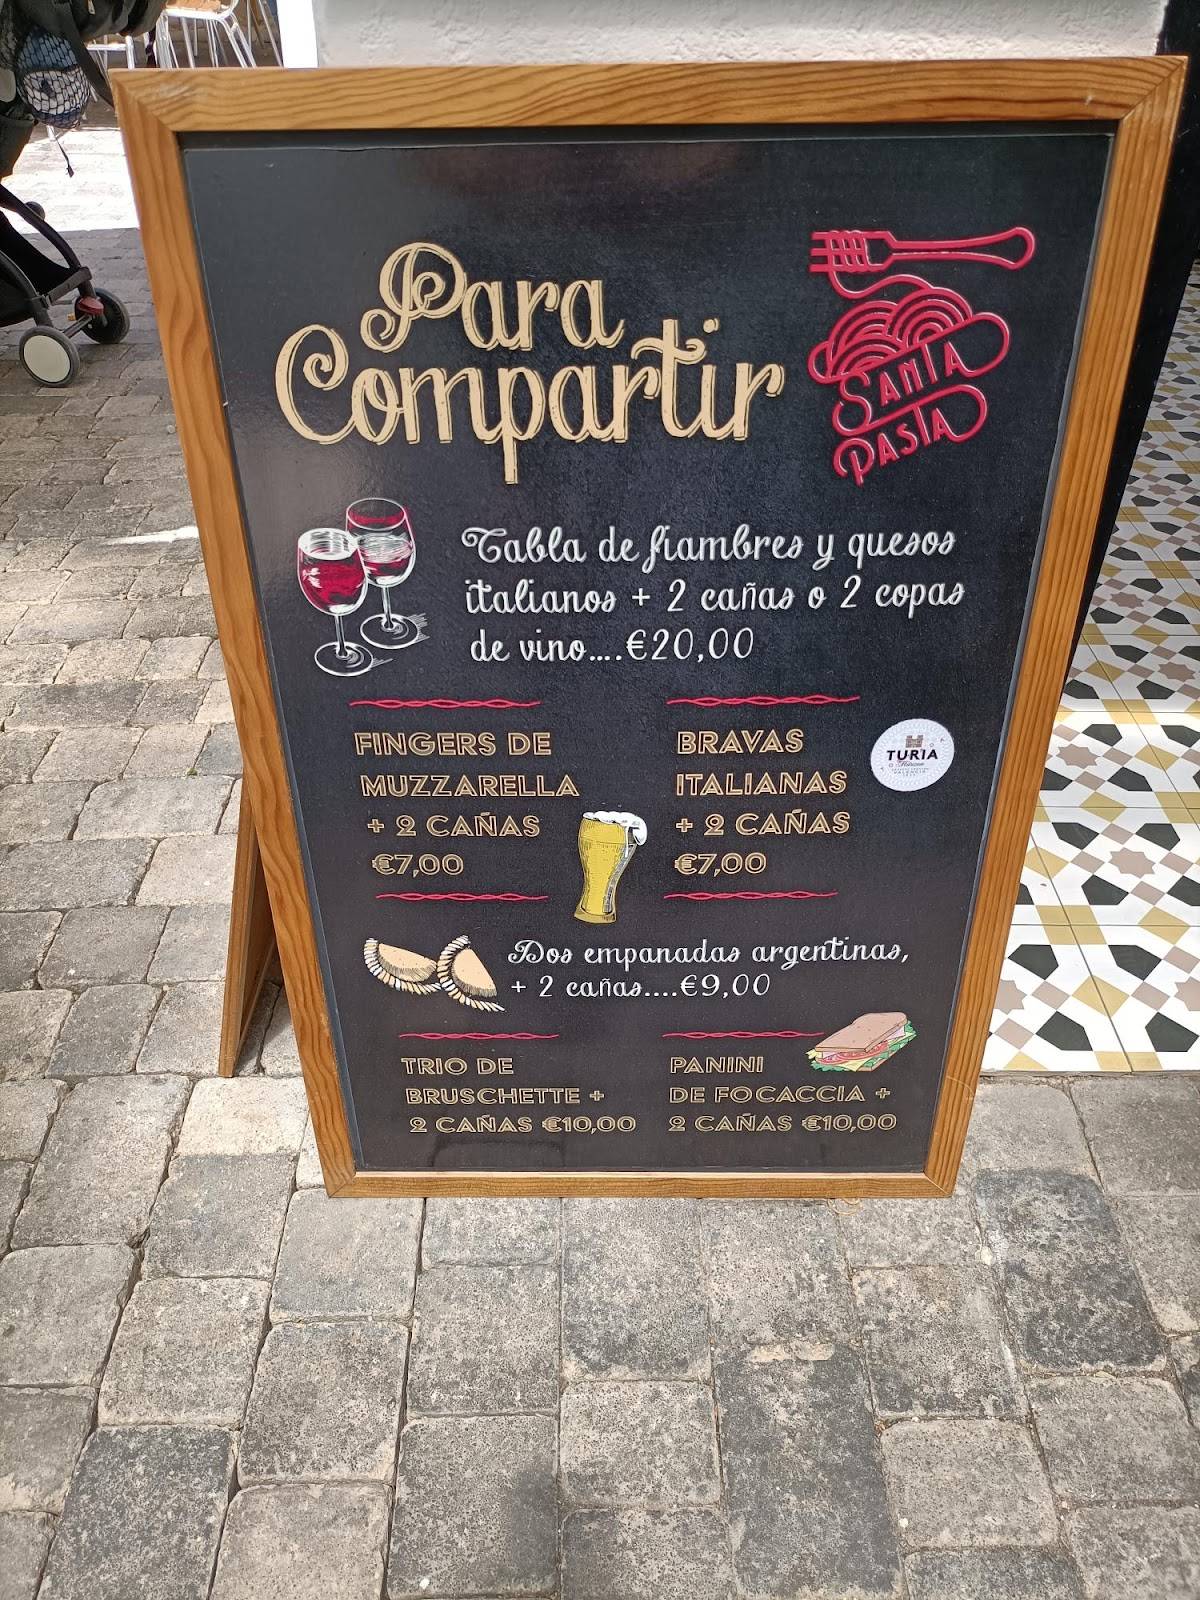 Para
Compartir
SANTA
PASTA
Tabla de fiambres y quesos
italianos + 2 cañas o 2 copas
de vino....€20,00
FINGERS DE
MUZZARELLA
+ 2 CAÑAS
€7,00
BRAVAS
ITALIANAS
+ 2 CAÑAS
€7,00
TURIA
Dos empanadas argentinas,
+ 2 cañas....€9,00
TRIO DE
BRUSCHETTE +
2 CAÑAS €10,00
PANINI
DE FOCACCIA +
2 CAÑAS €10,00